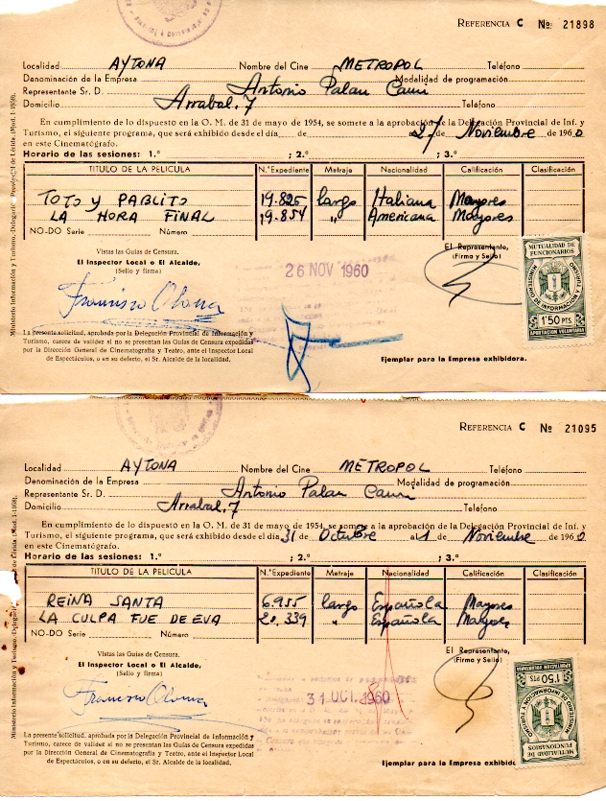 REFERENCIA C No 21898
Localidad AYTONA Nombre del Cine METROPOL Teléfono
Denominación de la Empresa Modalidad de programación
Representante Sr. D. Antonio Palau
Domicilio Arrabal, 7 Teléfono
En cumplimiento de lo dispuesto en la O. M. de 31 de mayo de 1954, se somete a la aprobación de la Delegación Provincial de Inf. y
Turismo, el siguiente programa, que será exhibido desde el día de al 27 de Noviembre de 1960
en este Cinematógrafo.
Horario de las sesiones: 1.ª ; 2.ª ; 3.ª
TITULO DE LA PELICULA N.º Expediente Metraje Nacionalidad Calificación Clasificación
TOTO Y PABLITO 19.825 largo Italiana Mayores
LA HORA FINAL 19.854 " Americana Mayores
NO-DO Serie Número
Vistas las Guías de Censura.
El Inspector Local o El Alcalde,
(Sello y firma)
El Representante,
(Firma y Sello)
26 NOV 1960
Francisco
MUTUALIDAD DE
FUNCIONARIOS
MINISTERIO DE INFORMACION Y TURISMO
1'50 PTS
APORTACION VOLUNTARIA
La presente solicitud, aprobada por la Delegación Provincial de Información y
Turismo, carece de validez si no se presentan las Guías de Censura expedidas
por la Dirección General de Cinematografía y Teatro, ante el Inspector Local
de Espectáculos, o en su defecto, el Sr. Alcalde de la localidad.
Ejemplar para la Empresa exhibidora.
REFERENCIA C No 21095
Localidad AYTONA Nombre del Cine METROPOL Teléfono
Denominación de la Empresa Modalidad de programación
Representante Sr. D. Antonio Palau
Domicilio Arrabal, 7 Teléfono
En cumplimiento de lo dispuesto en la O. M. de 31 de mayo de 1954, se somete a la aprobación de la Delegación Provincial de Inf. y
Turismo, el siguiente programa, que será exhibido desde el día 31 de Octubre al 1 de Noviembre de 1960
en este Cinematógrafo.
Horario de las sesiones: 1.ª ; 2.ª ; 3.ª
TITULO DE LA PELICULA N.º Expediente Metraje Nacionalidad Calificación Clasificación
REINA SANTA 6.955 largo Española Mayores
LA CULPA FUE DE EVA 20.339 " Española Mayores
NO-DO Serie Número
Vistas las Guías de Censura.
El Inspector Local o El Alcalde,
(Sello y firma)
El Representante,
(Firma y Sello)
31 OCT. 1960
Francisco
1'50 PTS
MINISTERIO DE INFORMACION Y TURISMO
MUTUALIDAD DE
FUNCIONARIOS
La presente solicitud, aprobada por la Delegación Provincial de Información y
Turismo, carece de validez si no se presentan las Guías de Censura expedidas
por la Dirección General de Cinematografía y Teatro, ante el Inspector Local
de Espectáculos, o en su defecto, el Sr. Alcalde de la localidad.
Ejemplar para la Empresa exhibidora